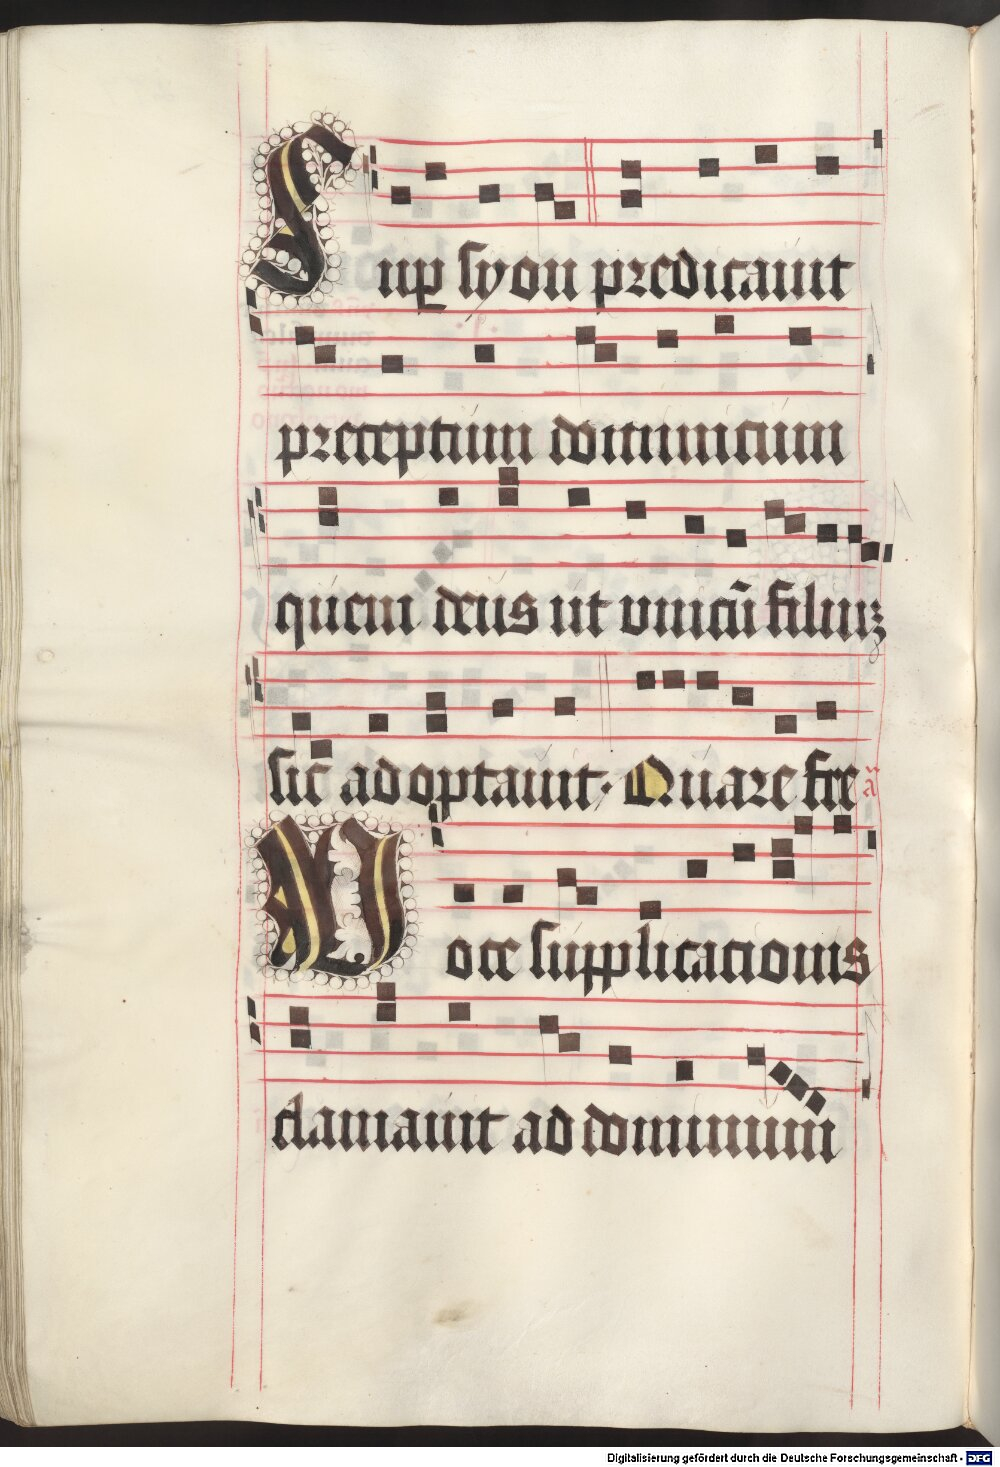 Sup̱ syon predicauit
preceptum dominicum
quem deus ut vnicū filiuꝫ
sic adoptauit. Quare fre a
Uoce supplicacionis
clamauit ad dominum
Digitalisierung gefördert durch die Deutsche Forschungsgemeinschaft - DFG